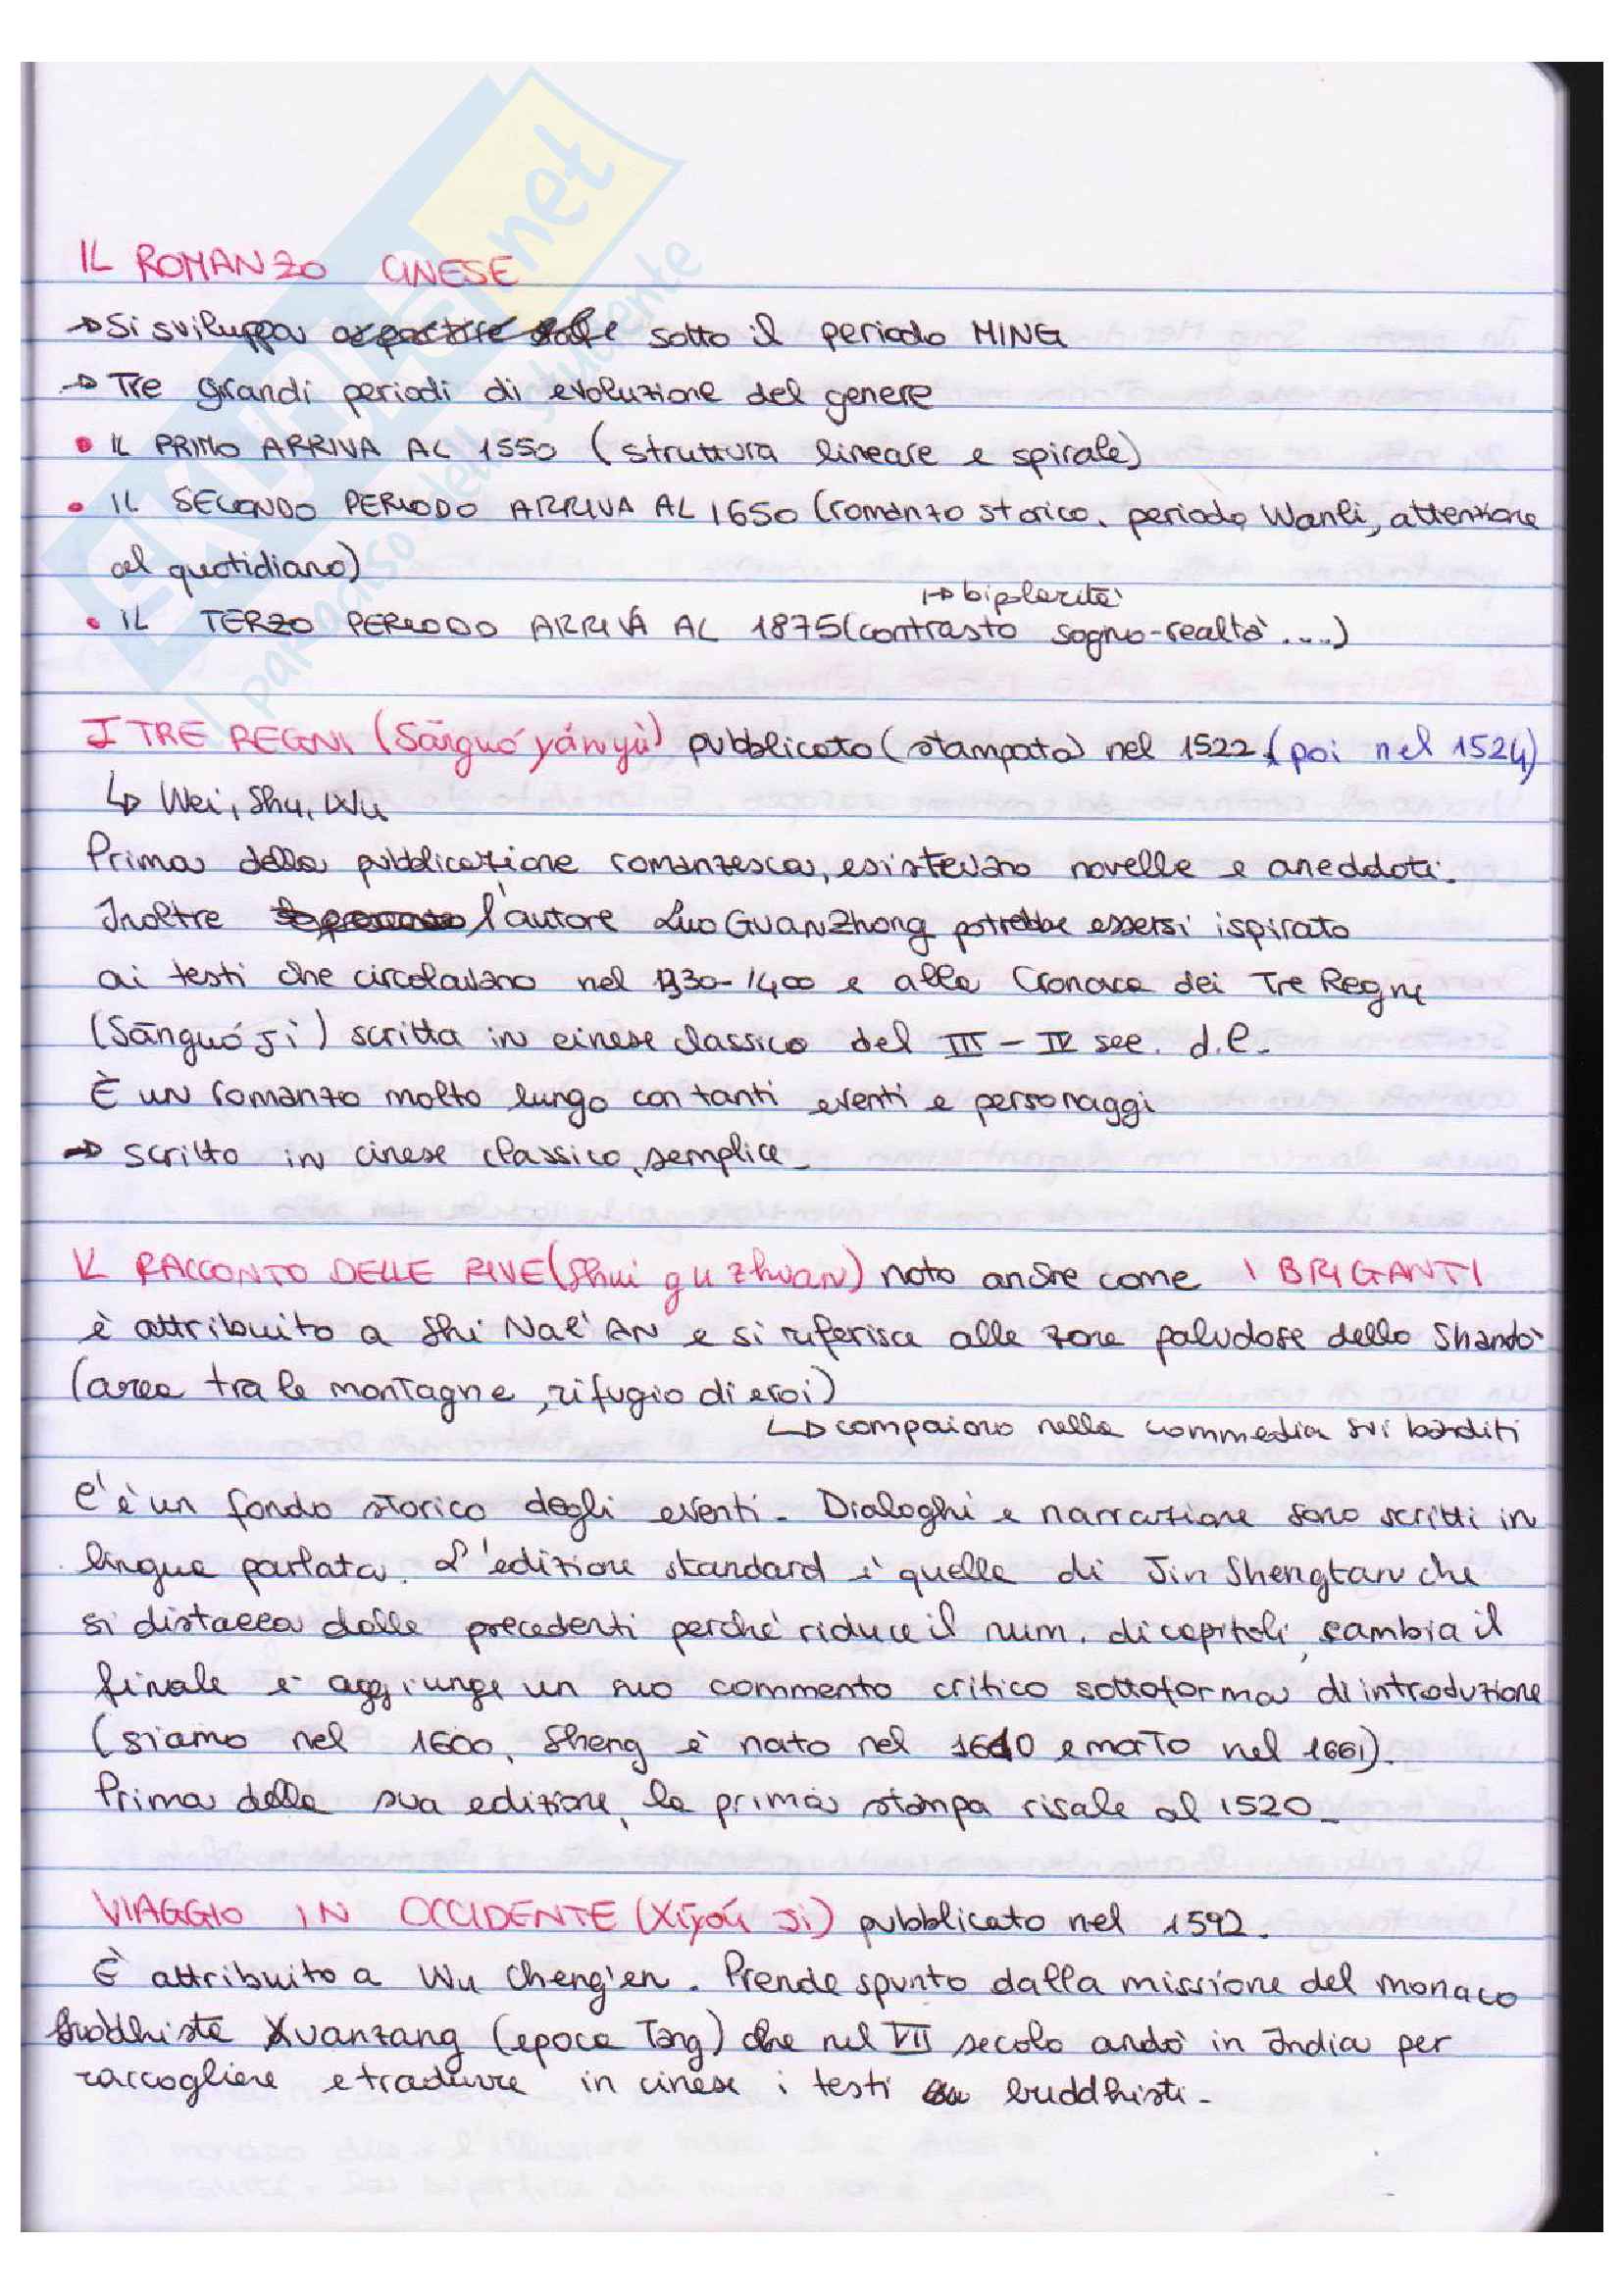 IL ROMANZO CINESE
→ Si sviluppa sotto il periodo MING
→ Tre grandi periodi di evoluzione del genere
• IL PRIMO ARRIVA AL 1550 (struttura lineare e spirale)
• IL SECONDO PERIODO ARRIVA AL 1650 (romanzo storico, periodo Wanli, attenzione
al quotidiano)
↦ bipolarità
• IL TERZO PERIODO ARRIVA AL 1875 (contrasto sogno-realtà ....)
I TRE REGNI (Sānguó yányì) pubblicato (stampato) nel 1522 (poi nel 1524)
↳ Wei, Shu, Wu
Prima della pubblicazione romanzesca, esistevano novelle e aneddoti.
Inoltre l'autore Luo GuanZhong potrebbe essersi ispirato
ai testi che circolavano nel 1330-1400 e alla Cronaca dei Tre Regni
(Sānguó Jì) scritta in cinese classico del III - IV sec. d.C.
È un romanzo molto lungo con tanti eventi e personaggi
→ scritto in cinese classico, semplice.
IL RACCONTO DELLE RIVE (Shui gu zhuan) noto anche come I BRIGANTI
è attribuito a Shi Nai'AN e si riferisce alle zone paludose dello Shando
(area tra le montagne, rifugio di eroi)
↳ compaiono nella commedia sui banditi
C'è un fondo storico degli eventi. Dialoghi e narrazione sono scritti in
lingua parlata. L'edizione standard è quella di Jin Shengtan che
si distacca dalle precedenti perché riduce il num. di capitoli, cambia il
finale e aggiunge un suo commento critico sottoforma di introduzione
(siamo nel 1600, Sheng è nato nel 1610 e morto nel 1661).
Prima della sua edizione, la prima stampa risale al 1520.
VIAGGIO IN OCCIDENTE (Xīyóu Jì) pubblicato nel 1592.
È attribuito a Wu Cheng'en. Prende spunto dalla missione del monaco
buddhista Xuanzang (epoca Tang) che nel VII secolo andò in India per
raccogliere e tradurre in cinese i testi buddhisti.